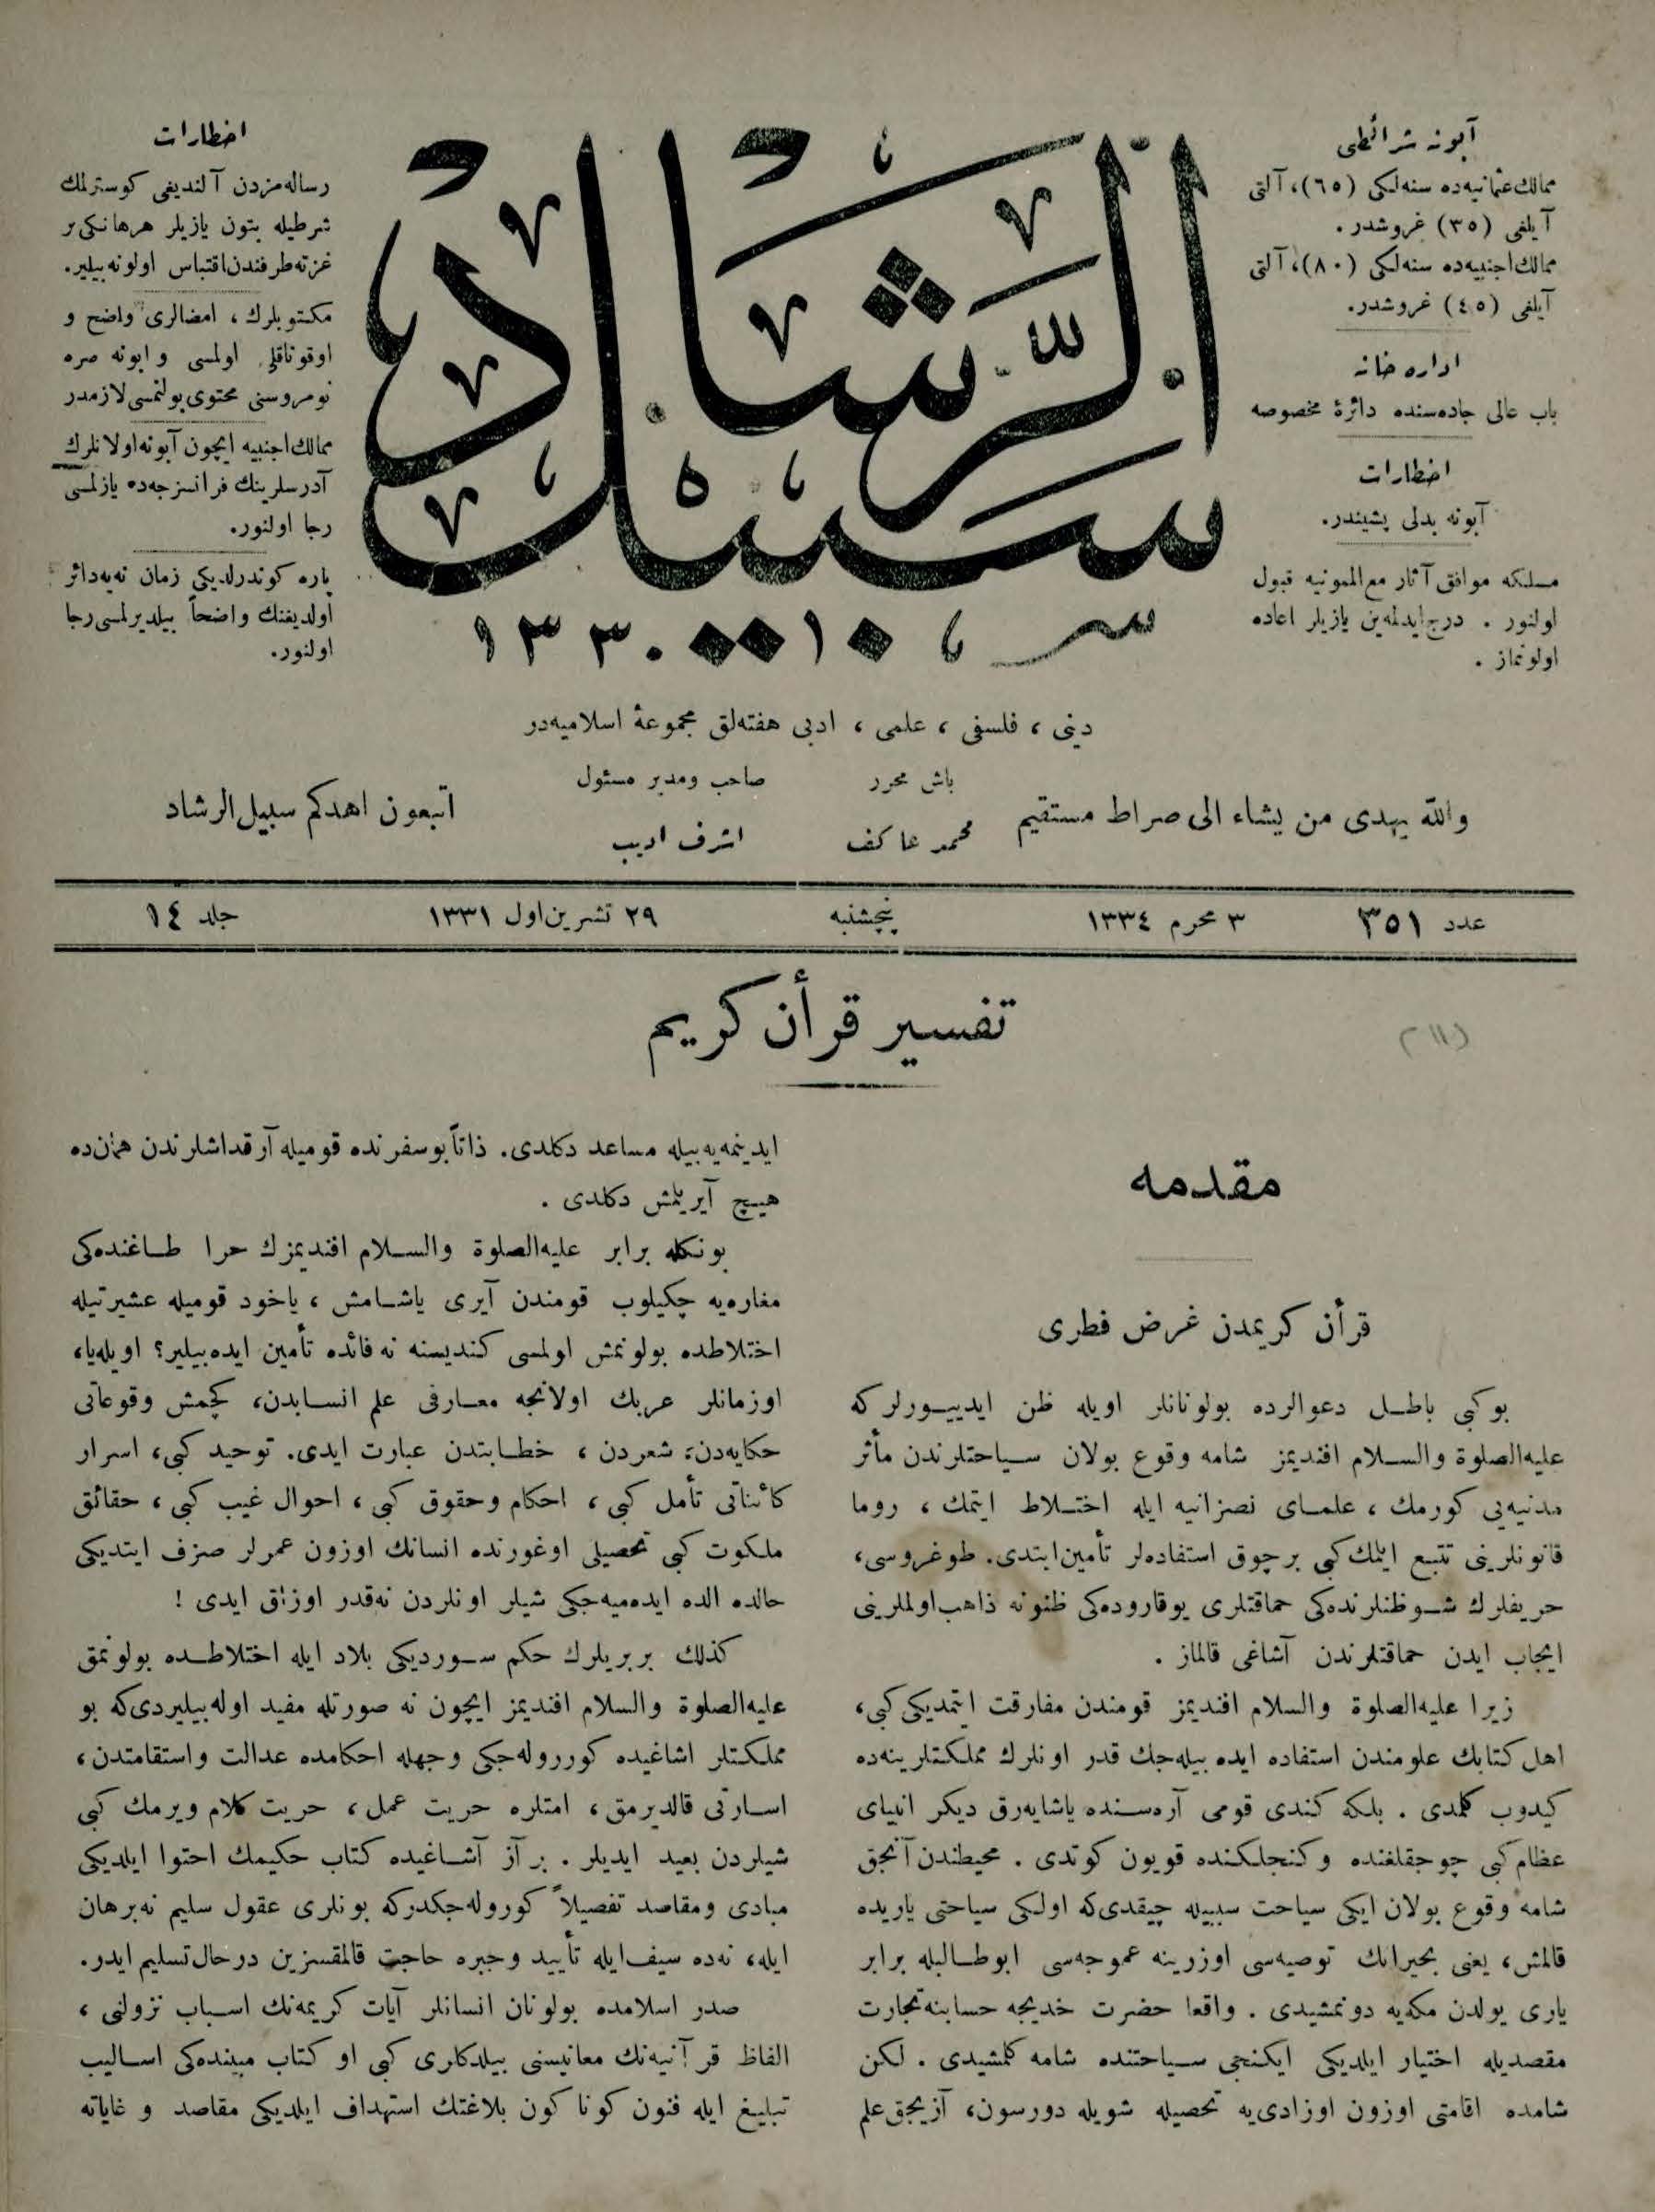 آبونه شرائطی
ممالك عثمانیه‌ده سنه‌لكی (٦٥)، آلتی
آیلغی (٣٥) غروشدر.
ممالك اجنبیه‌ده سنه‌لكی (٨٠)، آلتی
آیلغی (٤٥) غروشدر.
اداره خانه
باب عالی جاده‌سنده دائرۀ مخصوصه
اخطارات
آبونه بدلی پشیندر.
مسلكه موافق آثار مع‌الممونیه قبول
اولنور. درج ایدلمه‌ین یازیلر اعاده
اولونماز.
سبیل الرّشاد
١٣٣٠
اخطارات
رساله‌مزدن آلندیغی كوسترلمك
شرطیله بتون یازیلر هرهانكی بر
غزته طرفندن اقتباس اولونه‌بیلیر.
مكتوبلرك، امضالری واضح و
اوقوناقلی اولمسی و ابونه صره
نومروسنی محتوی بولنمسی لازمدر
ممالك اجنبیه ایچون آبونه اولانلرك
آدرسلرینك فرانسزجه‌ده یازلمسی
رجا اولنور.
پاره كوندرلدیكی زمان نه‌یه دائر
اولدیغنك واضحاً بیلدیرلمسی رجا
اولنور.
دینی، فلسفی، علمی، ادبی هفته‌لق مجموعۀ اسلامیه‌در
والله یهدی من یشاء الی صراط مستقیم
باش محرر
محمد عاكف
صاحب ومدیر مسئول
اشرف ادیب
اتبعون اهدكم سبیل الرشاد
عدد ٣٥١
٣ محرم ١٣٣٤
پنجشنبه
٢٩ تشرین اول ١٣٣١
جلد ١٤
تفسیر قرأن كریم
مقدمه
قرأن كریمدن غرض فطری
بو كبی باطل دعوالرده بولونانلر اویله ظن ایدییورلركه
علیه‌الصلوة والسلام افندیمز شامه وقوع بولان سیاحتلرندن مآثر
مدنیه‌یی كورمك، علمای نصرانیه ایله اختلاط ایتمك، روما
قانونلرینی تتبع ایتمك كبی بر چوق استفاده‌لر تأمین ایتدی. طوغروسی،
حریفلرك شو ظنلرنده‌كی حماقتلری یوقاروده‌كی ظنونه ذاهب اولملرینی
ایجاب ایدن حماقتلرندن آشاغی قالماز.
زیرا علیه‌الصلوة والسلام افندیمز قومندن مفارقت ایتمدیكی كبی،
اهل كتابك علومندن استفاده ایده بیله‌جك قدر اونلرك مملكتلرینه‌ده
كیدوب كلمدی. بلكه كندی قومی آره‌سنده یاشایه‌رق دیكر انبیای
عظام كبی چوجقلغنده و كنجلكنده قویون كوتدی. محیطندن آنجق
شامه وقوع بولان ایكی سیاحت سببیله چیقدی‌كه اولكی سیاحتی یاریده
قالمش، یعنی بحیرانك توصیه‌سی اوزرینه عموجه‌سی ابوطالبله برابر
یاری یولدن مكه‌یه دونمشیدی. واقعا حضرت خدیجه حسابنه تجارت
مقصدیله اختیار ایلدیكی ایكنجی سیاحتنده شامه كلمشیدی. لكن
شامده اقامتی اوزون اوزادی‌یه تحصیله شویله دورسون، آزیجق علم
ایدینمه‌یه بیله مساعد دكلدی. ذاتاً بو سفرنده قومیله آرقداشلرندن همان‌ده
هیچ آیریلمش دكلدی.
بونكله برابر علیه‌الصلوة والسلام افندیمزك حرا طاغنده‌كی
مغاره‌یه چكیلوب قومندن آیری یاشامش، یاخود قومیله عشیرتیله
اختلاطده بولونمش اولمسی كندیسنه نه فائده تأمین ایده‌بیلیر؟ اویله‌یا،
اوزمانلر عربك اولانجه معارفی علم انسابدن، كچمش وقوعاتی
حكایه‌دن، شعردن، خطابتدن عبارت ایدی. توحید كبی، اسرار
كائناتی تأمل كبی، احكام وحقوق كبی، احوال غیب كبی، حقائق
ملكوت كبی تحصیلی اوغورنده انسانك اوزون عمرلر صرف ایتدیكی
حالده الده ایده‌میه‌جكی شیلر اونلردن نه‌قدر اوزاق ایدی!
كذلك بربریلرك حكم سوردیكی بلاد ایله اختلاطده بولونمق
علیه‌الصلوة والسلام افندیمز ایچون نه صورتله مفید اوله‌بیلیردی‌كه بو
مملكتلر اشاغیده كورروله‌جكی وجهله احكامده عدالت واستقامتدن،
اسارتی قالدیرمق، امتلره حریت عمل، حریت كلام ویرمك كبی
شیلردن بعید ایدیلر. بر آز آشاغیده كتاب حكیمك احتوا ایلدیكی
مبادی ومقاصد تفصیلاً كوروله‌جكدركه بونلری عقول سلیم نه‌برهان
ایله، نه‌ده سیف ایله تأیید وجبره حاجت قالمقسزین درحال تسلیم ایدر.
صدر اسلامده بولونان انسانلر آیات كریمه‌نك اسباب نزولنی،
الفاظ قرآنیه‌نك معانیسنی بیلدكلری كبی او كتاب مبینده‌كی اسالیب
تبلیغ ایله فنون كوناكون بلاغتك استهداف ایلدیكی مقاصد و غایاته